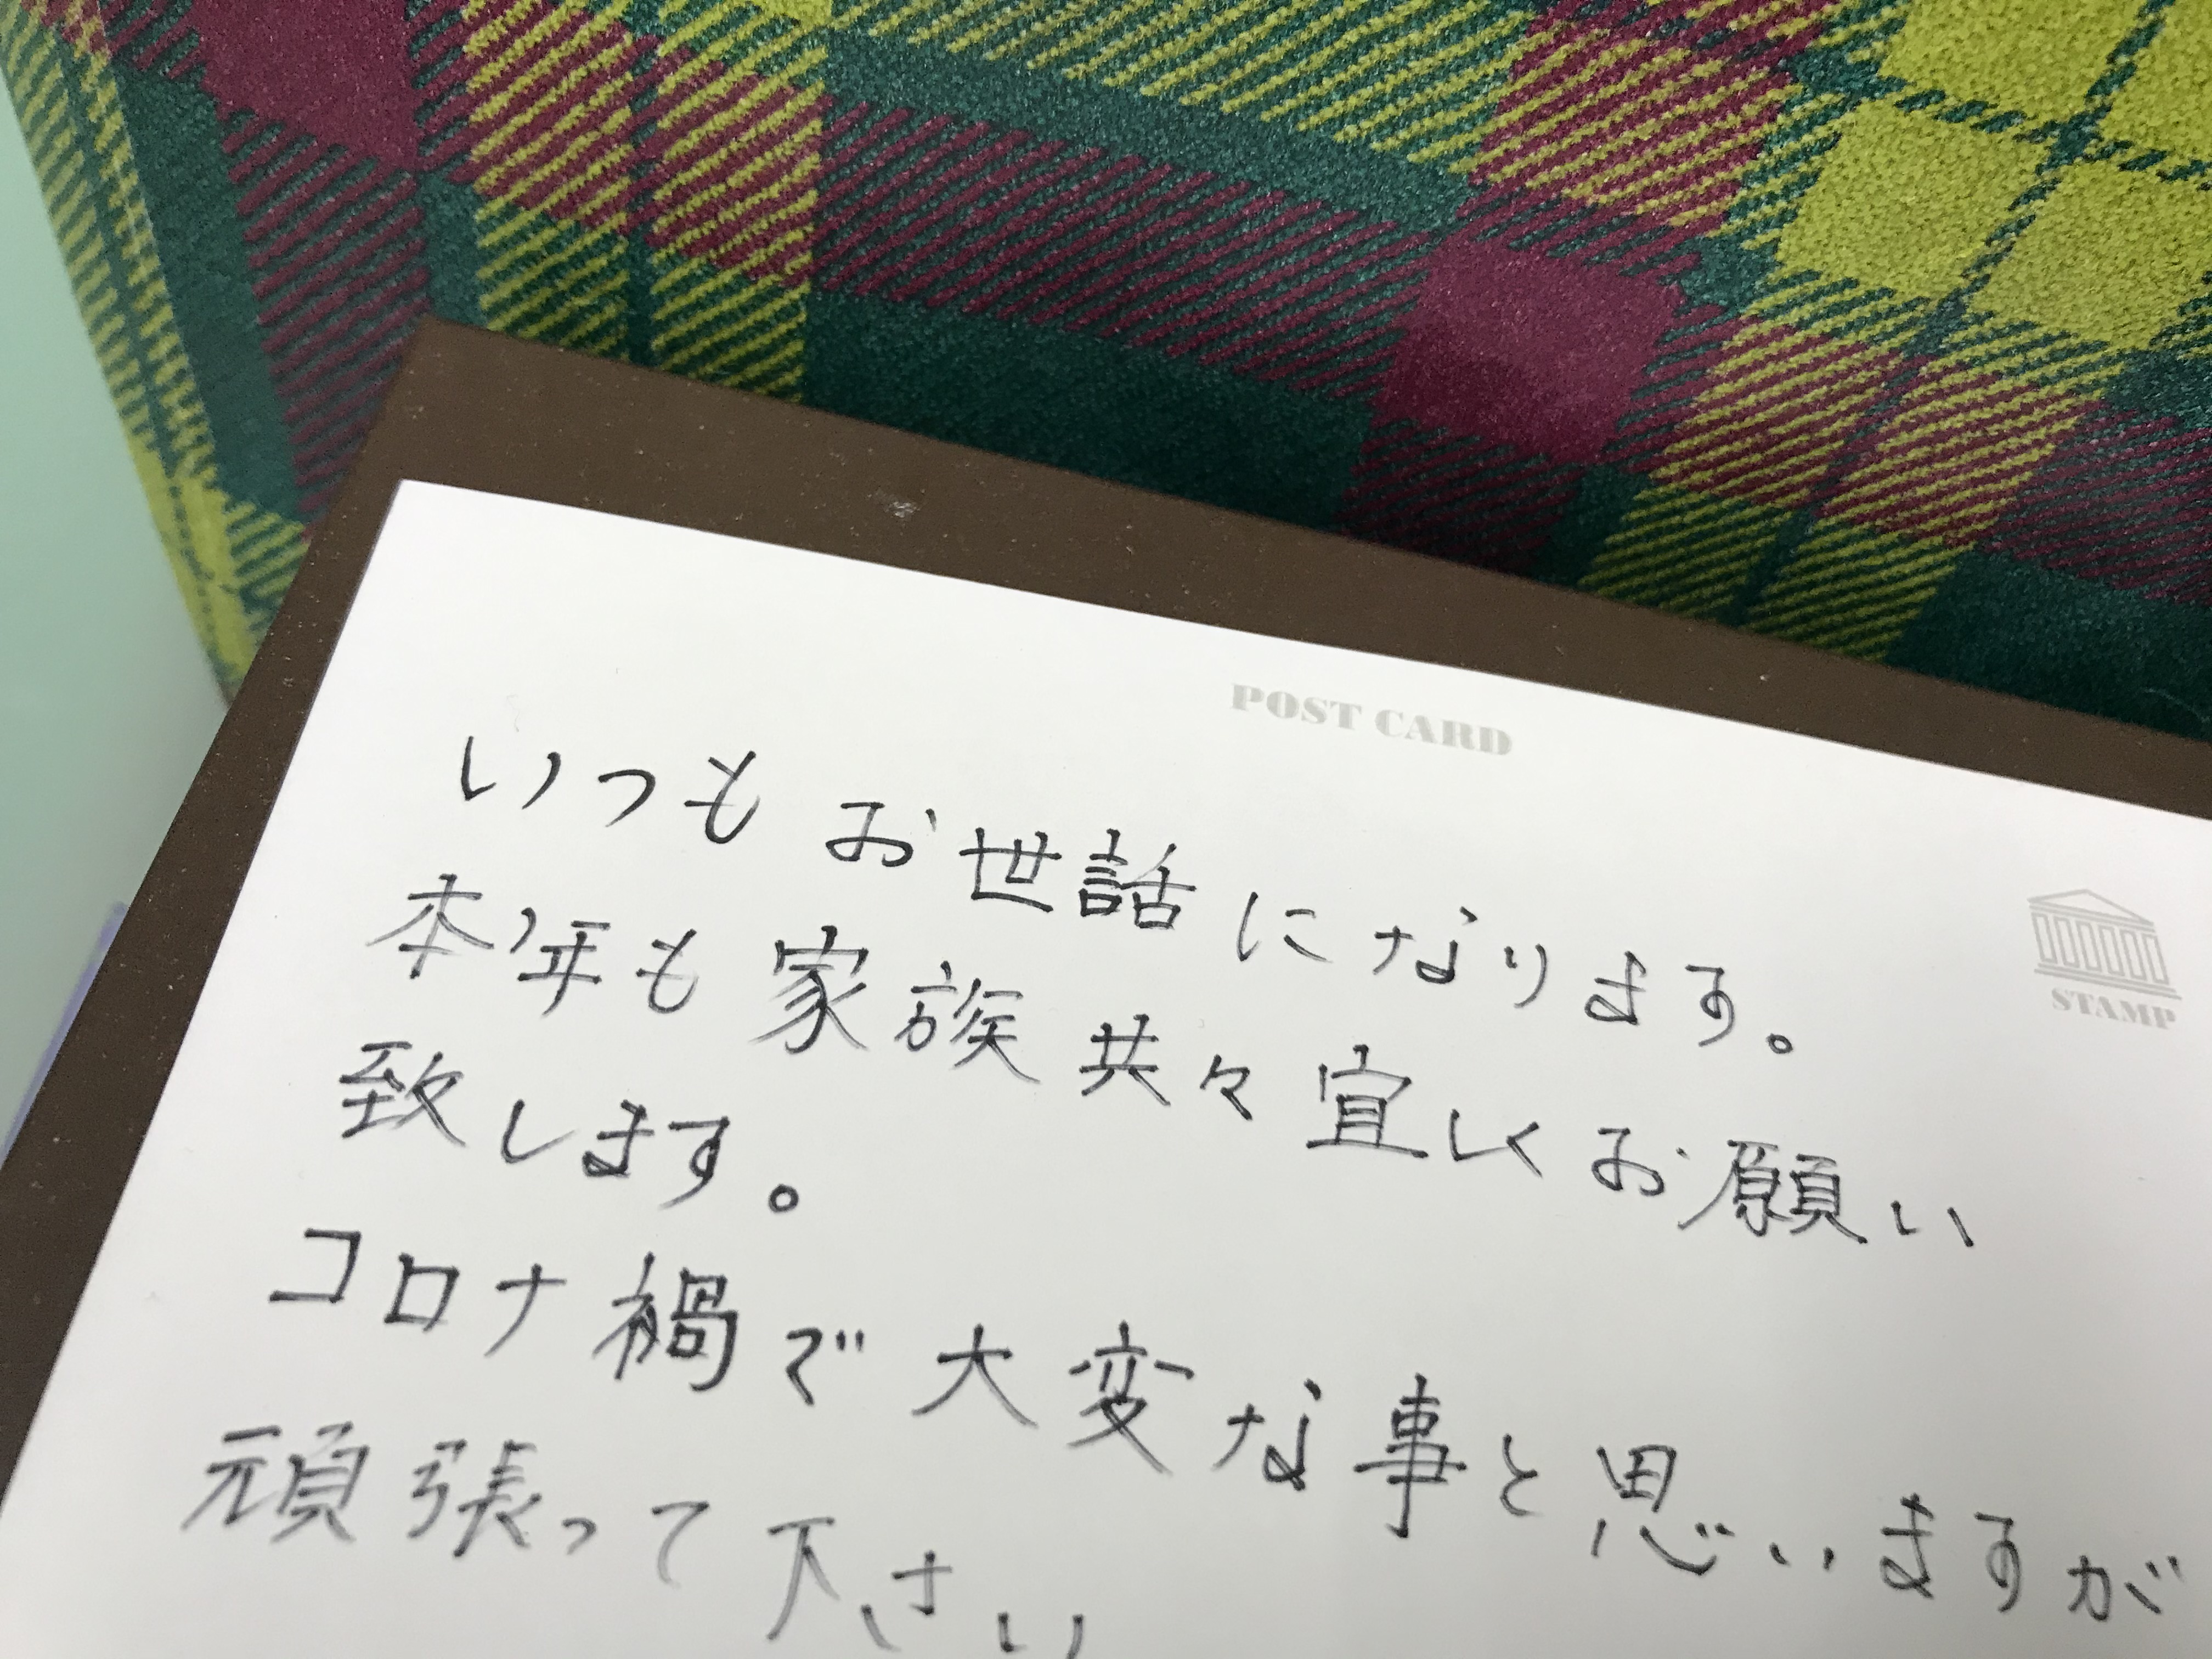 POST CARD
STAMP
いつもお世話になります。
本年も家族共々宜しくお願い
致します。
コロナ禍で大変な事と思いますが
頑張って下さい